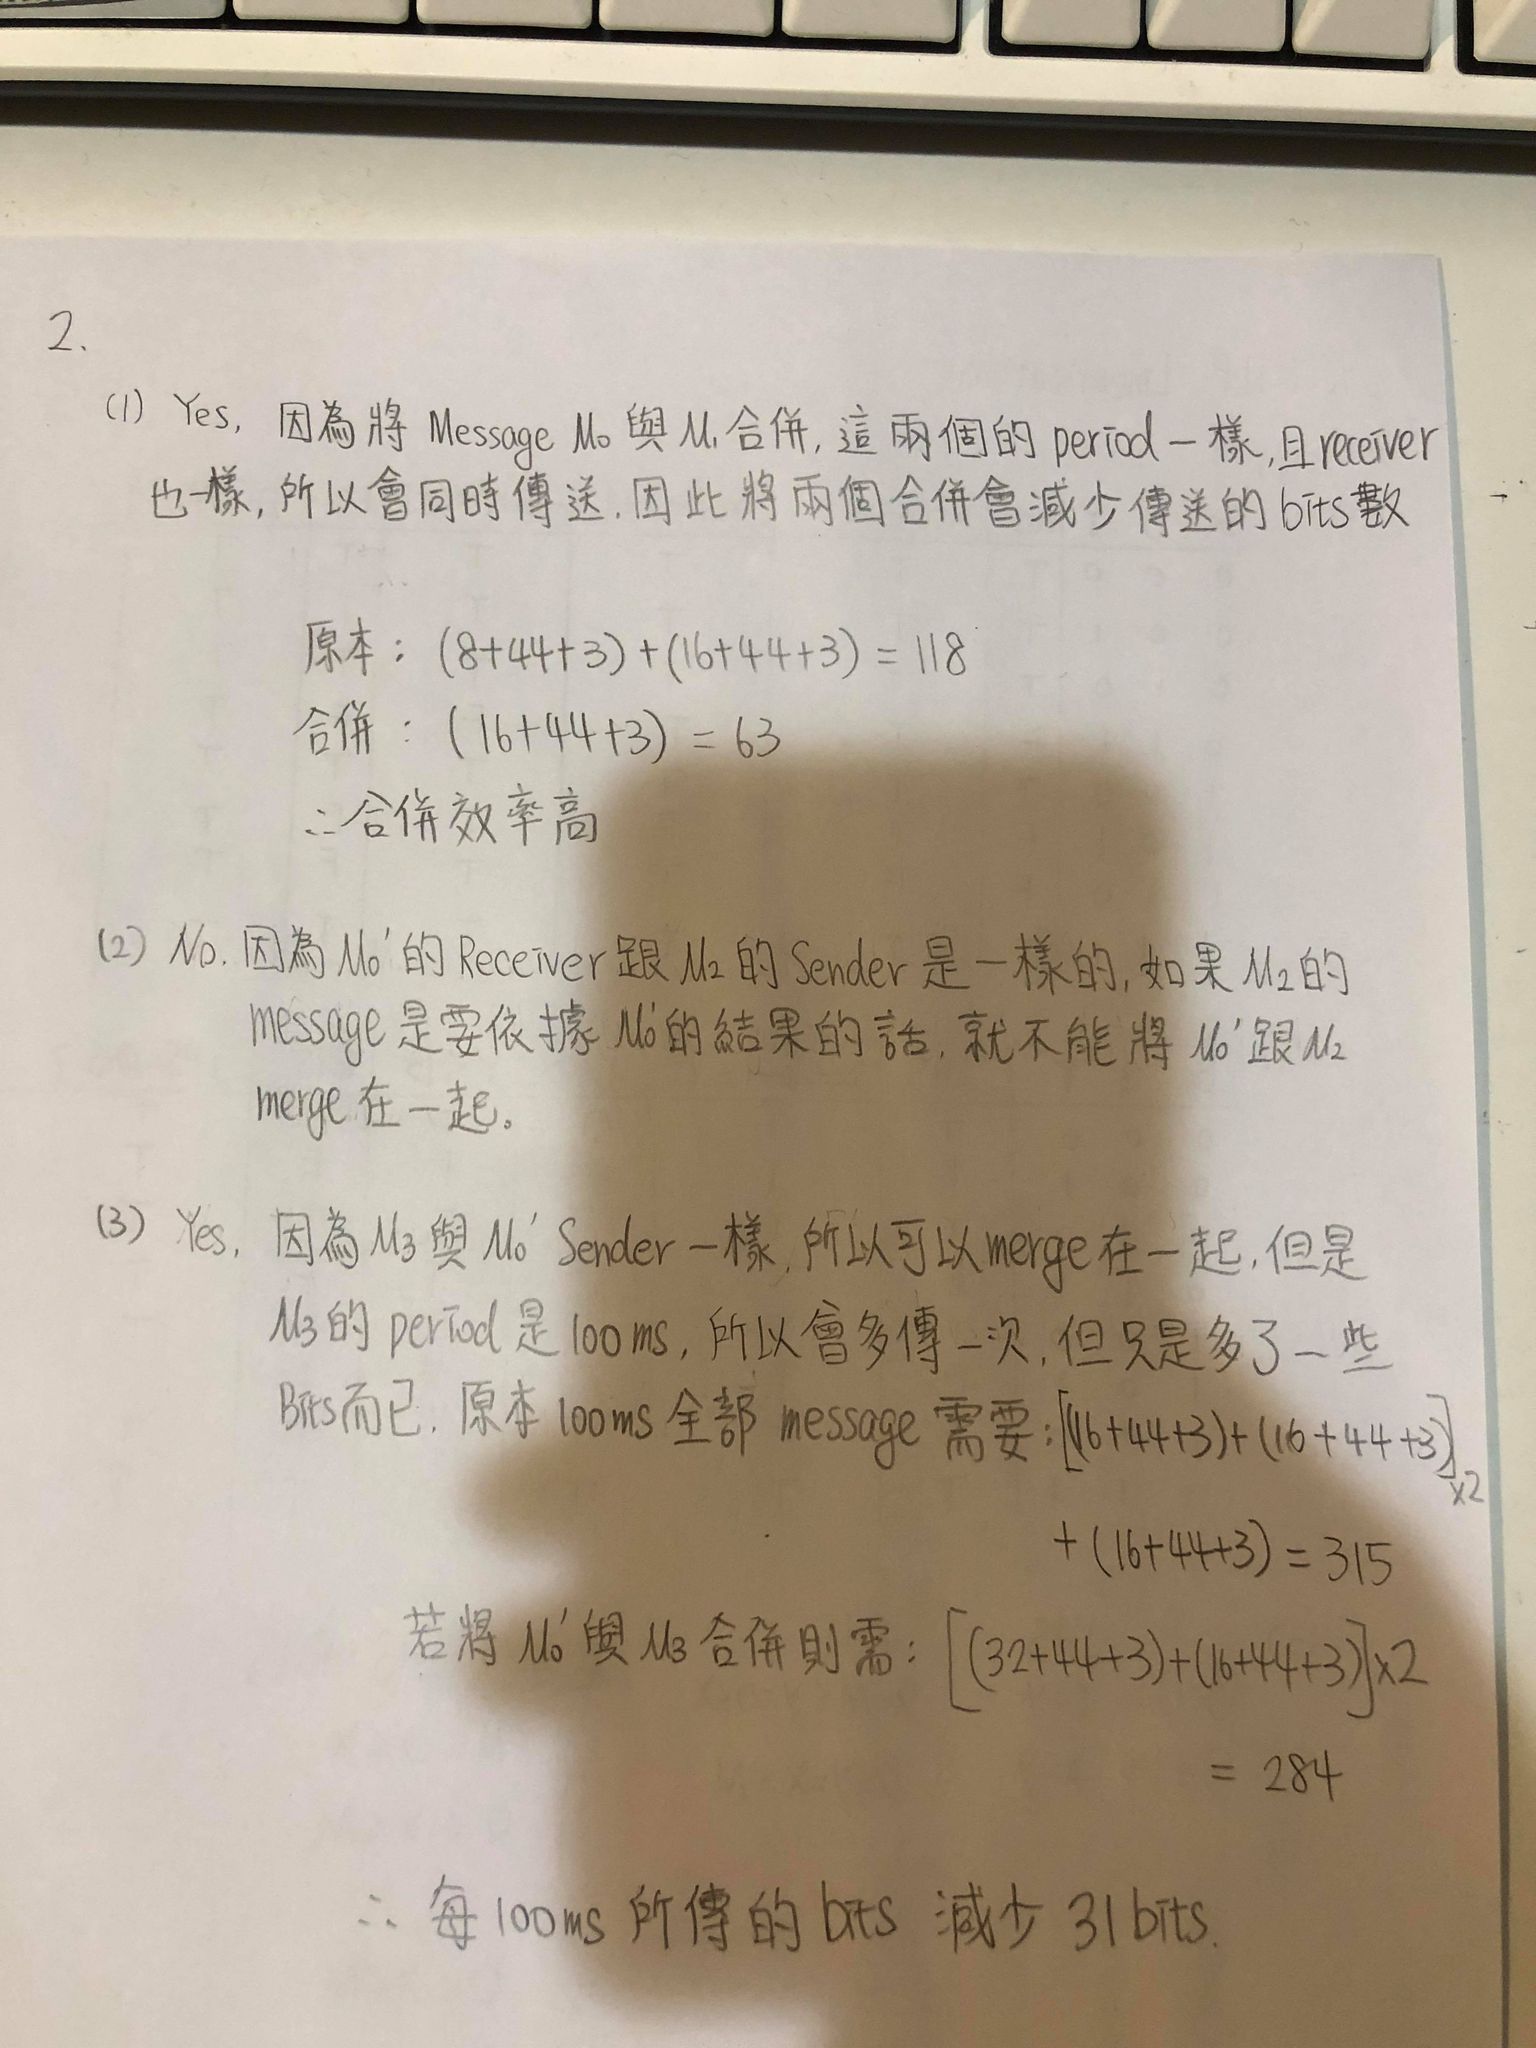 2.
(1) Yes, 因為將 Message M₀ 與 M₁ 合併, 這兩個的 period 一樣, 且 receiver
也一樣, 所以會同時傳送. 因此將兩個合併會減少傳送的 bits 數
原本: (8+44+3)+(16+44+3) = 118
合併: (16+44+3) = 63
∴合併效率高
(2) No. 因為 M₀' 的 Receiver 跟 M₂ 的 Sender 是一樣的, 如果 M₂ 的
message 是要依據 M₀' 的結果的話, 就不能將 M₀' 跟 M₂
merge 在一起。
(3) Yes, 因為 M₃ 與 M₀' Sender 一樣, 所以可以 merge 在一起, 但是
M₃ 的 period 是 100 ms, 所以會多傳一次, 但只是多了一些
Bits 而已. 原本 100ms 全部 message 需要: [(16+44+3)+(16+44+3)]
×2
+ (16+44+3) = 315
若將 M₀' 與 M₃ 合併則需: [(32+44+3)+(16+44+3)]×2
= 284
∴ 每 100ms 所傳的 bits 減少 31 bits.